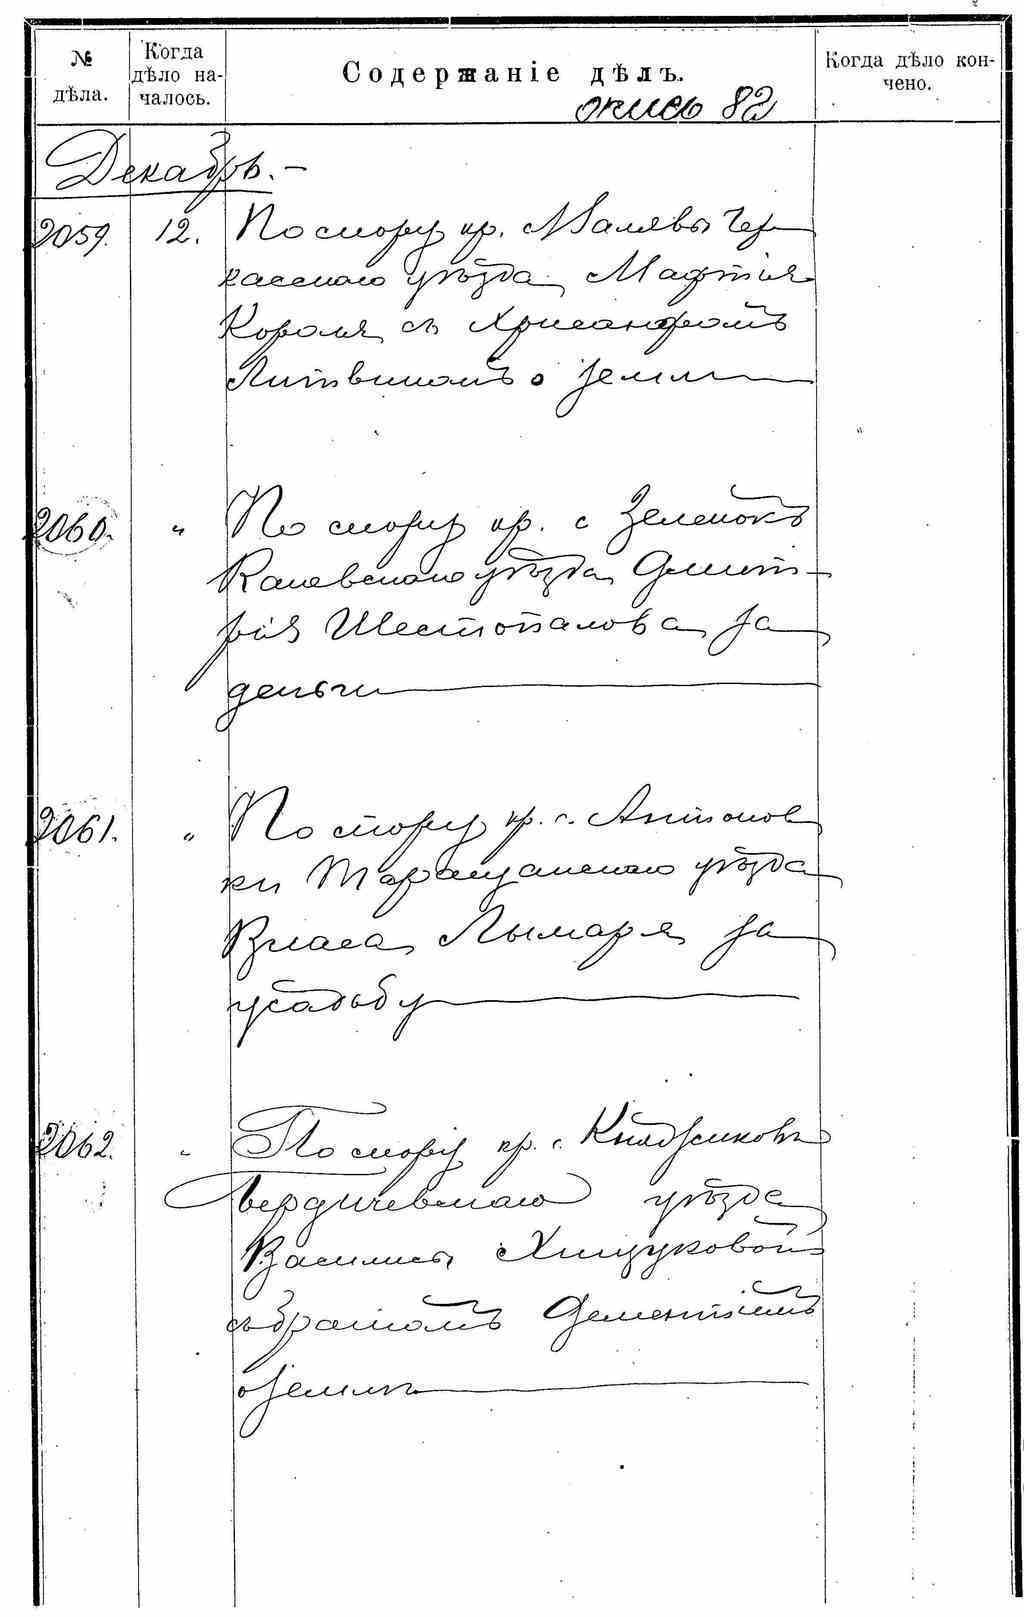 № дѣла.
Когда дѣло началось.
Содержаніе дѣлъ.
Когда дѣло кончено.
опись 82
Декабрь.-
2059. 12. По спору кр. Малявы Чер
касскаго уѣзда Мафтія
Короля съ Хрисанфомъ
Литвиномъ о земли
2060. " По спору кр. с Зеленокъ
Каневскаго уѣзда Дмит-
рія Шестопалова за
деньги
2061. " По спору кр. с. Антонов
ки Таращанскаго уѣзда
Власа Лымаря за
усадьбу
2062. " По спору кр. с.
Бердичевскаго уѣзда
Василисы Хищуковой
съ братомъ Дементіемъ
о земли